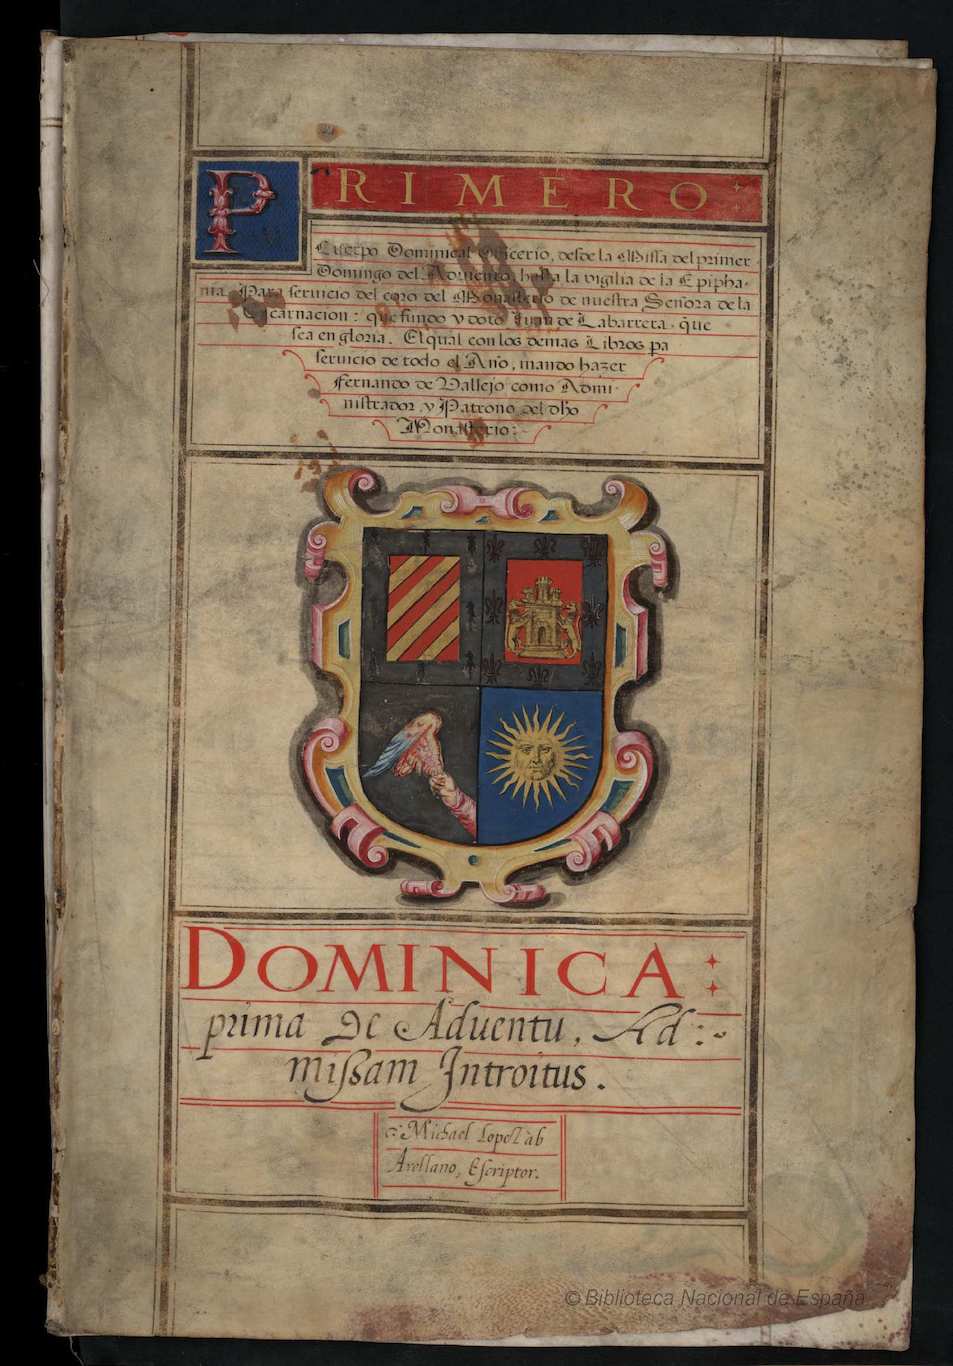 PRIMERO
Cuerpo Dominical Officerio, desde la Missa del primer
Domingo del Aduiento, hasta la vigilia de la Epipha-
nia. Para seruicio del coro del Monasterio de nuestra Señora de la
Encarnacion: que fundo y doto Iuan de Labarrera. que
sea en gloria. El qual con los demas Libros pa
seruicio de todo el Año, mando hazer
fernando de Vallejo como Admi-
nistrador, y Patrono del dho
Monasterio:
DOMINICA:
prima De Aduentu, Ad:
missam Introitus.
Michael Lopez ab
Arellano, Escriptor.
© Biblioteca Nacional de España